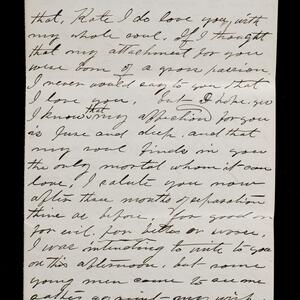 that, Kate I do love you, with
my whole soul. If I thought
that my attachment for you
were born of a gross passion
I never would say to you that
I love you, but I hope, yes
I know that my affection for you
is pure and deep, and that
my soul finds in you
the only mortal whom it can
love, I salute you now
after three months of separation
thine as before, for good or
for evil, for better or worse,
I was intending to write to you
on this afternoon, but some
young men came to see me